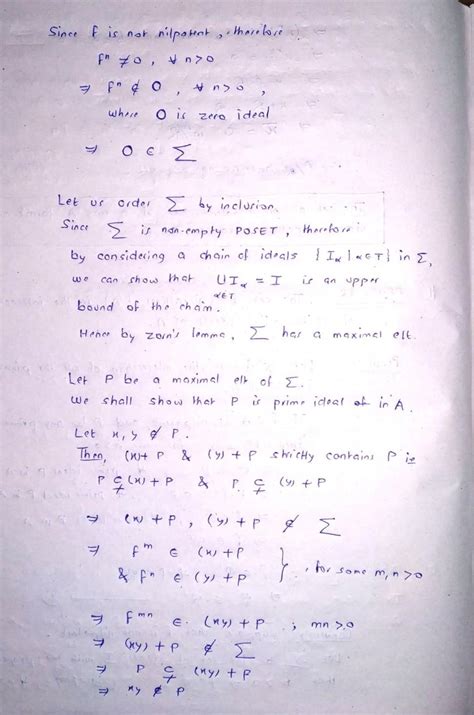 Since f is not nilpotent, therefore
fⁿ ≠ 0, ∀ n>0
⇒ fⁿ ∉ O, ∀ n>0,
where O is zero ideal
⇒ O ∈ Σ
Let us order Σ by inclusion.
Since Σ is non-empty POSET, therefore
by considering a chain of ideals {I_α | α∈T} in Σ,
we can show that ∪ I_α = I is an upper
α∈T
bound of the chain.
Hence by zorn's lemma, Σ has a maximal elt.
Let P be a maximal elt of Σ.
We shall show that P is prime ideal in A.
Let x, y ∉ P.
Then, (x)+P & (y)+P strictly contains P ie
P ⊊ (x)+P & P ⊊ (y)+P
⇒ (x)+P, (y)+P ∉ Σ
⇒ fᵐ ∈ (x)+P
& fⁿ ∈ (y)+P } , for some m,n>0
⇒ fᵐⁿ ∈ (xy)+P ; mn>0
⇒ (xy)+P ∉ Σ
⇒ P ⊊ (xy)+P
⇒ xy ∉ P